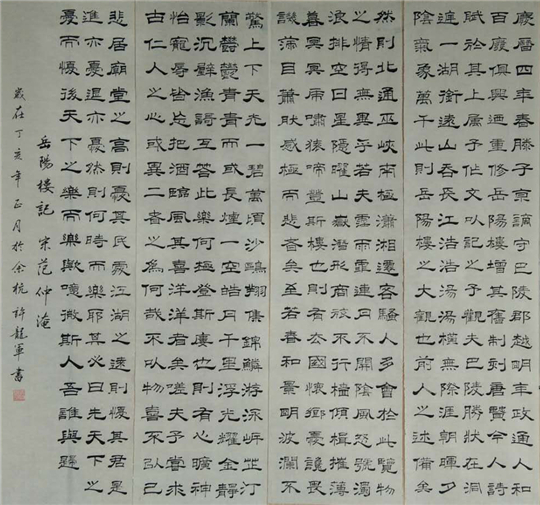 慶曆四年春滕子京謫守巴陵郡越明年政通人和
百廢具興迺重修岳陽樓增其舊制刻唐賢今人詩
賦於其上屬予作文以記之予觀夫巴陵勝狀在洞
庭一湖銜遠山吞長江浩浩湯湯橫無際涯朝暉夕
陰氣象萬千此則岳陽樓之大觀也前人之述備矣
然則北通巫峽南極瀟湘遷客騷人多會於此覽物
之情得無異乎若夫霪雨霏霏連月不開陰風怒號濁
浪排空日星隱曜山嶽潛形商旅不行檣傾楫摧薄
暮冥冥虎嘯猿啼登斯樓也則有去國懷鄉憂讒畏
譏滿目蕭然感極而悲者矣至若春和景明波瀾不
驚上下天光一碧萬頃沙鷗翔集錦鱗游泳岸芷汀
蘭鬱鬱青青而或長煙一空皓月千里浮光耀金靜
影沉璧漁歌互答此樂何極登斯樓也則有心曠神
怡寵辱皆忘把酒臨風其喜洋洋者矣嗟夫予嘗求
古仁人之心或異二者之為何哉不以物喜不以己
悲居廟堂之高則憂其民處江湖之遠則憂其君是
進亦憂退亦憂然則何時而樂耶其必曰先天下之
憂而憂後天下之樂而樂歟噫微斯人吾誰與歸
岳陽樓記 宋范仲淹
歲在丁亥年正月於余杭許龍軍書